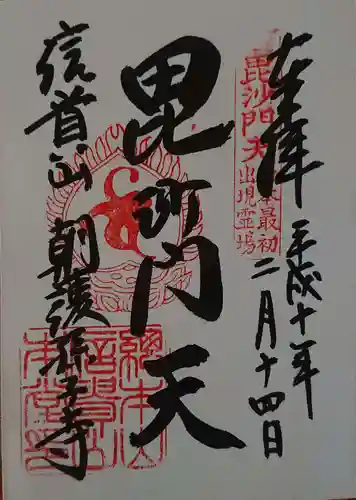 奉拝
平成十年
二月十四日
毘沙門天
日本最初
出現霊場
毘沙門天
信貴山
朝護孫子寺